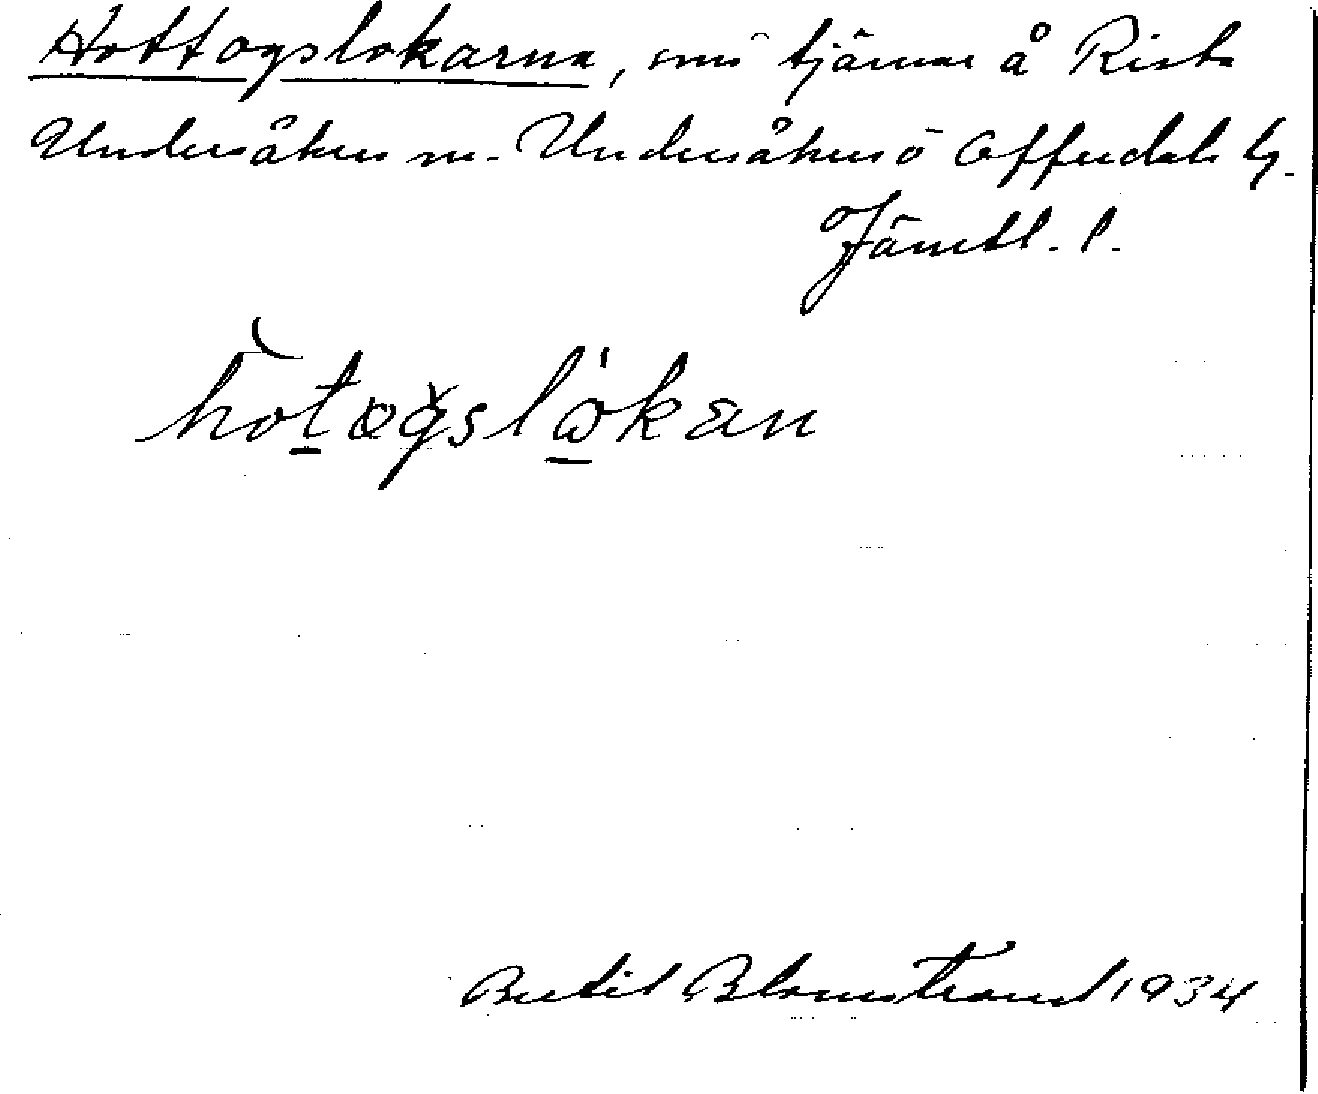 Hottogslokarna, små tjärnar å Rista
Undersåkers sn. Undersåkers o Offerdals tg.
Jämtl. l.
hotogslokan
Bertil Blomstrand 1934